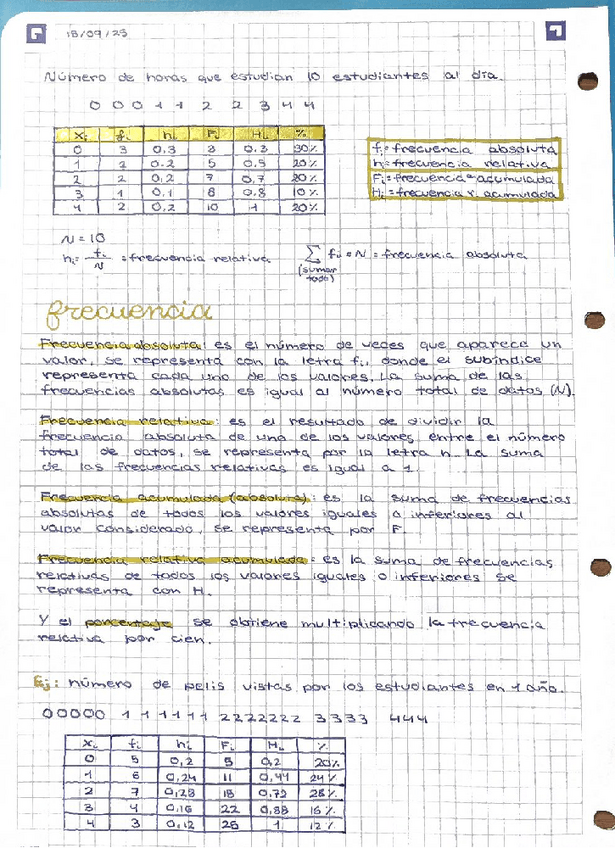 18/09/25
Número de horas que estudian 10 estudiantes al día.
0 0 0 1 1 2 2 3 4 4
xᵢ fᵢ hᵢ Fᵢ Hᵢ %
0 3 0.3 3 0.3 30%
1 2 0.2 5 0,5 20%
2 2 0,2 7 0,7 20%
3 1 0,1 8 0,8 10%
4 2 0,2 10 1 20%
fᵢ = frecuencia absoluta
hᵢ = frecuencia relativa
Fᵢ = frecuencia acumulada
Hᵢ = frecuencia r. acumulada
N = 10
hᵢ = fᵢ/N = frecuencia relativa
∑ fᵢ = N = frecuencia absoluta
(sumar todo)
frecuencia
Frecuencia absoluta: es el número de veces que aparece un
valor, se representa con la letra fᵢ, donde el subíndice
representa cada uno de los valores. La suma de las
frecuencias absolutas es igual al número total de datos (N).
Frecuencia relativa: es el resultado de dividir la
frecuencia absoluta de uno de los valores entre el número
total de datos, se representa por la letra h. La suma
de las frecuencias relativas es igual a 1.
Frecuencia acumulada (absoluta): es la suma de frecuencias
absolutas de todos los valores iguales o inferiores al
valor considerado, se representa por F.
Frecuencia relativa acumulada: es la suma de frecuencias
relativas de todos los valores iguales o inferiores se
representa con H.
Y el porcentaje se obtiene multiplicando la frecuencia
relativa por cien.
Ej: número de pelis vistas por los estudiantes en 1 año.
00000 111111 2222222 3333 444
xᵢ fᵢ hᵢ Fᵢ Hᵢ %
0 5 0,2 5 0,2 20%
1 6 0,24 11 0,44 24%
2 7 0,28 18 0,72 28%
3 4 0,16 22 0,88 16%
4 3 0,12 25 1 12%